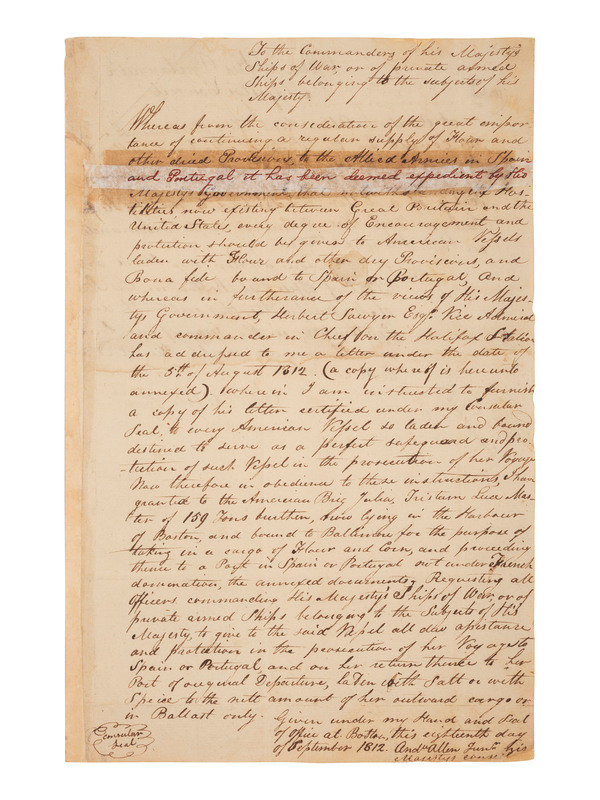 To the Commanders of his Majesty's
Ships of War, or of private armed
Ships belonging to the subjects of his
Majesty.
Whereas from the consideration of the great impor
tance of continuing a regular supply of Flour and
other dried Provisions, to the Allied Armies in Spain
and Portugal it has been deemed expedient by His
Majesty's Government that
tilities, now existing between Great Britain and the
United States, every degree of Encouragement and
protection should be given to American Vessels
laden with Flour and other dry Provisions, and
Bona fide bound to Spain or Portugal, And
whereas in furtherance of the views of His Majes-
tys Government, Herbert Sawyer Esqr. Vice Admiral
and commander in Chief on the Halifax Station
has addressed to me a letter under the date of
the 5th of August 1812. (a copy whereof is hereunto
annexed) wherein I am instructed to furnish
a copy of his letter certified under my Consular
Seal, to every American Vessel so laden and bound
destined to serve as a perfect safeguard and pro-
-tection of such Vessel in the prosecution of her Voyage
Now therefore in obedience to these instructions, I have
granted to the American Brig Julia, Tristram Luce Mas-
ter of 159 Tons burthen, now lying in the Harbour
of Boston, and bound to Baltimore for the purpose of
taking in a cargo of Flour and Corn, and proceeding
thence to a Port in Spain or Portugal not under French
domination, the annexed documents, Requesting all
Officers commanding His Majesty's Ships of War, or of
private armed Ships belonging to the Subjects of His
Majesty, to give to the said Vessel all due assistance
and protection in the prosecution of her Voyage to
Spain or Portugal and on her return thence to her
Port of original Departure, laden with Salt or with
Specie to the nett amount of her outward cargo or
in Ballast only. Given under my Hand and Seal
of Office at Boston, this eighteenth day
of September 1812. Andw Allen Junr. his
Majestys consul
Consular
Seal